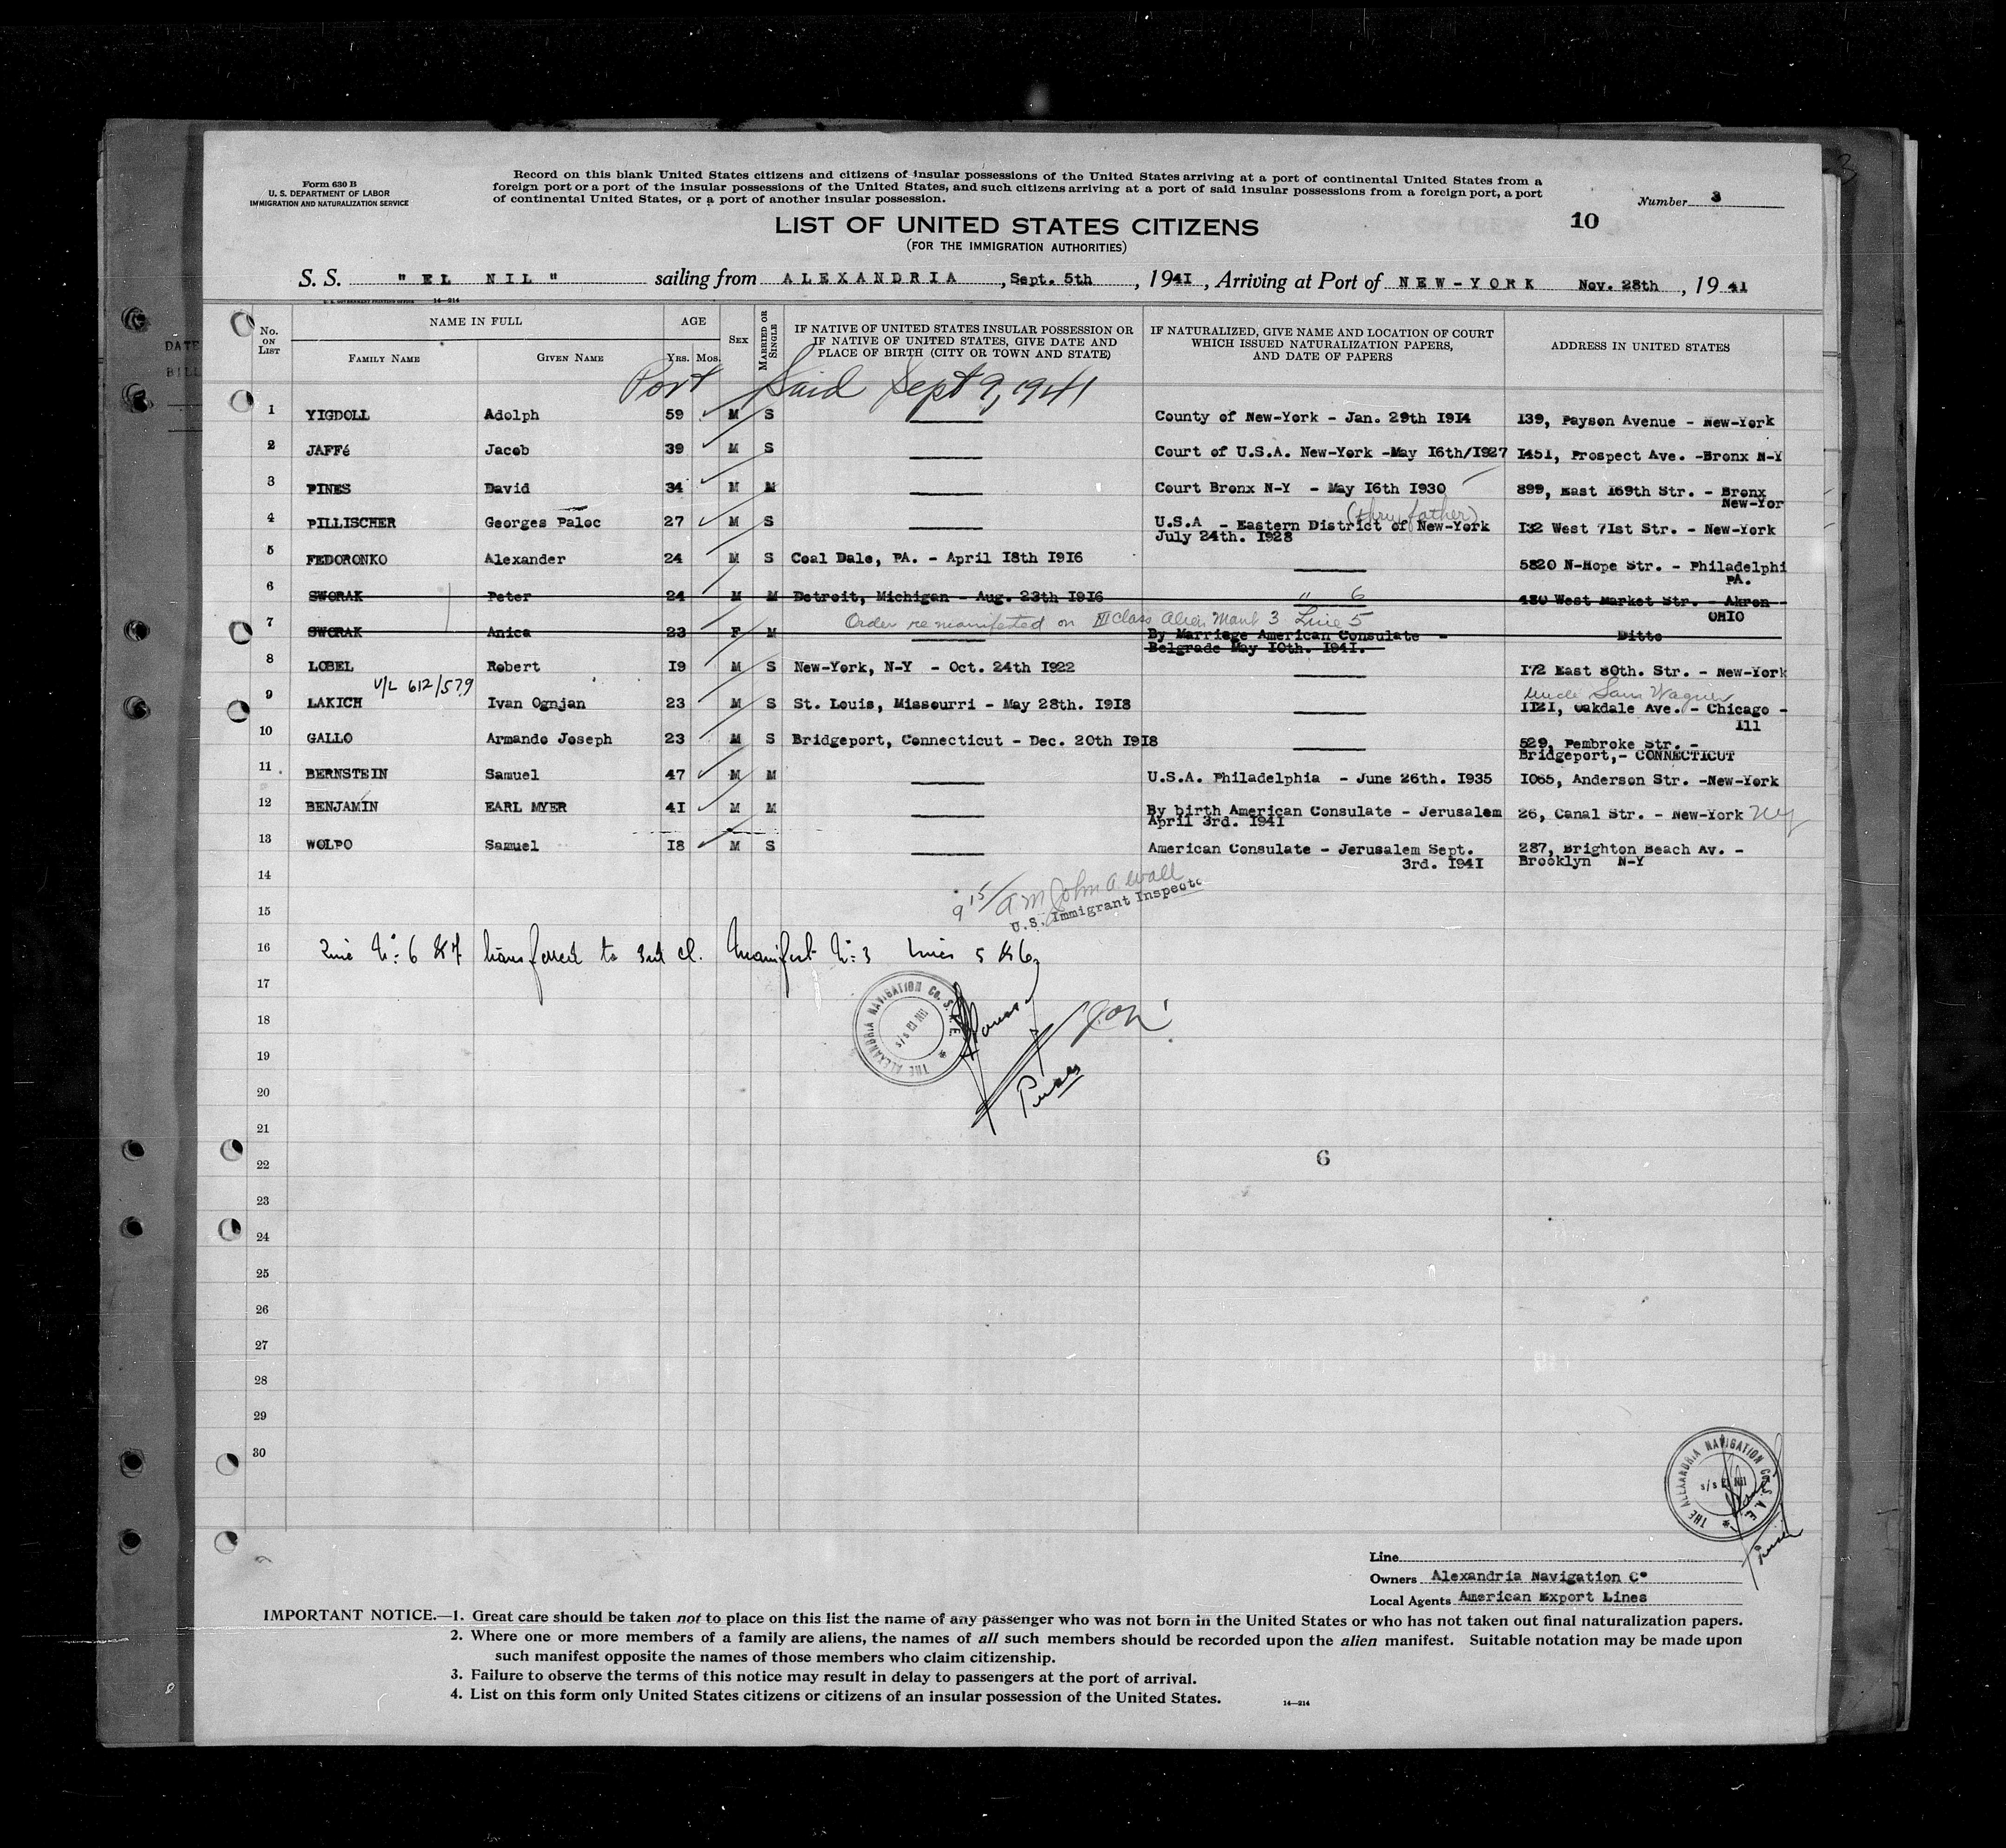 Form 630 B
U. S. DEPARTMENT OF LABOR
IMMIGRATION AND NATURALIZATION SERVICE
Record on this blank United States citizens and citizens of insular possessions of the United States arriving at a port of continental United States from a
foreign port or a port of the insular possessions of the United States, and such citizens arriving at a port of said insular possessions from a foreign port, a port
of continental United States, or a port of another insular possession.
Number 3
10
LIST OF UNITED STATES CITIZENS
(FOR THE IMMIGRATION AUTHORITIES)
S. S. "EL NIL" sailing from ALEXANDRIA, Sept. 5th, 1941, Arriving at Port of NEW-YORK Nov. 28th, 1941
U. S. GOVERNMENT PRINTING OFFICE 14—214
DATE
BILL
No. ON LIST
NAME IN FULL
FAMILY NAME
GIVEN NAME
AGE
YRS. MOS.
SEX
MARRIED OR SINGLE
IF NATIVE OF UNITED STATES INSULAR POSSESSION OR
IF NATIVE OF UNITED STATES, GIVE DATE AND
PLACE OF BIRTH (CITY OR TOWN AND STATE)
IF NATURALIZED, GIVE NAME AND LOCATION OF COURT
WHICH ISSUED NATURALIZATION PAPERS,
AND DATE OF PAPERS
ADDRESS IN UNITED STATES
Port Said Sept 9, 1941
1 YIGDOLL Adolph 59 M S County of New-York - Jan. 29th 1914 139, Payson Avenue - New-York
2 JAFFé Jacob 39 M S Court of U.S.A. New-York -May 16th/1927 1451, Prospect Ave. -Bronx N-Y
3 PINES David 34 M M Court Bronx N-Y - May 16th 1930 899, East 169th Str. - Bronx
New-Yor
(thru father)
4 PILLISCHER Georges Paloc 27 M S U.S.A - Eastern District of New-York 132 West 71st Str. - New-York
July 24th. 1928
5 FEDORONKO Alexander 24 M S Coal Dale, PA. - April 18th 1916 5820 N-Hope Str. - Philadelphi
PA.
" 6
6 SWORAK Peter 24 M M Detroit, Michigan - Aug. 23th 1916 480 West Market Str. - Akron-
OHIO
Order remanifested on III class Alien Manf 3 Line 5
7 SWORAK Anica 23 F M By Marriage American Consulate - Ditto
Belgrade May 10th. 1941.
8 LOBEL Robert 19 M S New-York, N-Y - Oct. 24th 1922 172 East 80th. Str. - New-York
V/L 612/579
Uncle Sam Wagner
9 LAKICH Ivan Ognjan 23 M S St. Louis, Missourri - May 28th. 1918 1121, Oakdale Ave. - Chicago -
Ill
10 GALLO Armando Joseph 23 M S Bridgeport, Connecticut - Dec. 20th 1918 529, Pembroke Str. -
Bridgeport,- CONNECTICUT
11 BERNSTEIN Samuel 47 M M U.S.A. Philadelphia - June 26th. 1935 1065, Anderson Str. -New-York
12 BENJAMIN EARL MYER 41 M M By birth American Consulate - Jerusalem 26, Canal Str. - New-York NY
April 3rd. 1941
13 WOLPO Samuel 18 M S American Consulate - Jerusalem Sept. 287, Brighton Beach Av. -
3rd. 1941 Brooklyn N-Y
14
9 15/ am John A Wall
U.S. Immigrant Inspecto
15
16 Line No: 6 & 7 transferred to 3rd cl. Manifest No: 3 lines 5 & 6
17
THE ALEXANDRIA NAVIGATION Co. S.A.E. *
S/S El Nil
18
19
20
Purser
21
22
6
23
24
25
26
27
28
29
30
THE ALEXANDRIA NAVIGATION Co. S.A.E. *
S/S El Nil
Line
Owners Alexandria Navigation Co
Local Agents American Export Lines
IMPORTANT NOTICE.—1. Great care should be taken not to place on this list the name of any passenger who was not born in the United States or who has not taken out final naturalization papers.
2. Where one or more members of a family are aliens, the names of all such members should be recorded upon the alien manifest. Suitable notation may be made upon
such manifest opposite the names of those members who claim citizenship.
3. Failure to observe the terms of this notice may result in delay to passengers at the port of arrival.
4. List on this form only United States citizens or citizens of an insular possession of the United States.
14—214